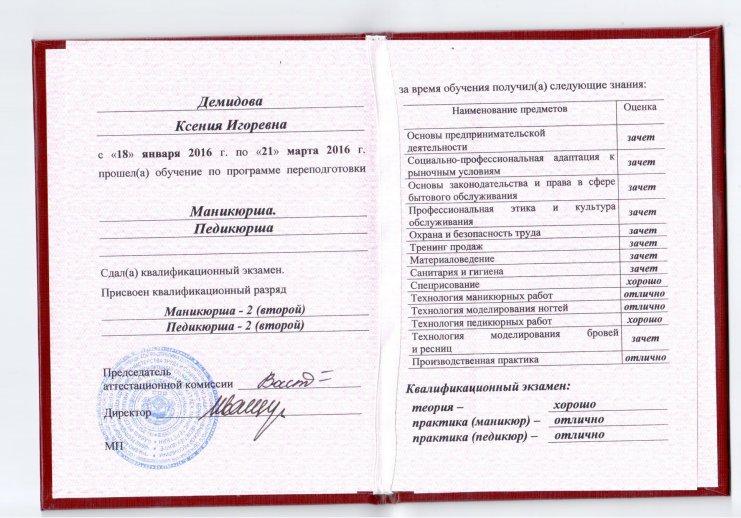 Демидова
Ксения Игоревна
с «18» января 2016 г. по «21» марта 2016 г.
прошел(а) обучение по программе переподготовки
Маникюрша.
Педикюрша
Сдал(а) квалификационный экзамен.
Присвоен квалификационный разряд
Маникюрша - 2 (второй)
Педикюрша - 2 (второй)
Председатель
аттестационной комиссии
Директор
МП
за время обучения получил(а) следующие знания:
Наименование предметов Оценка
Основы предпринимательской
деятельности зачет
Социально-профессиональная адаптация к
рыночным условиям зачет
Основы законодательства и права в сфере
бытового обслуживания зачет
Профессиональная этика и культура
обслуживания зачет
Охрана и безопасность труда зачет
Тренинг продаж зачет
Материаловедение зачет
Санитария и гигиена зачет
Спецрисование хорошо
Технология маникюрных работ отлично
Технология моделирования ногтей отлично
Технология педикюрных работ хорошо
Технология моделирования бровей
и ресниц зачет
Производственная практика отлично
Квалификационный экзамен:
теория – хорошо
практика (маникюр) – отлично
практика (педикюр) – отлично